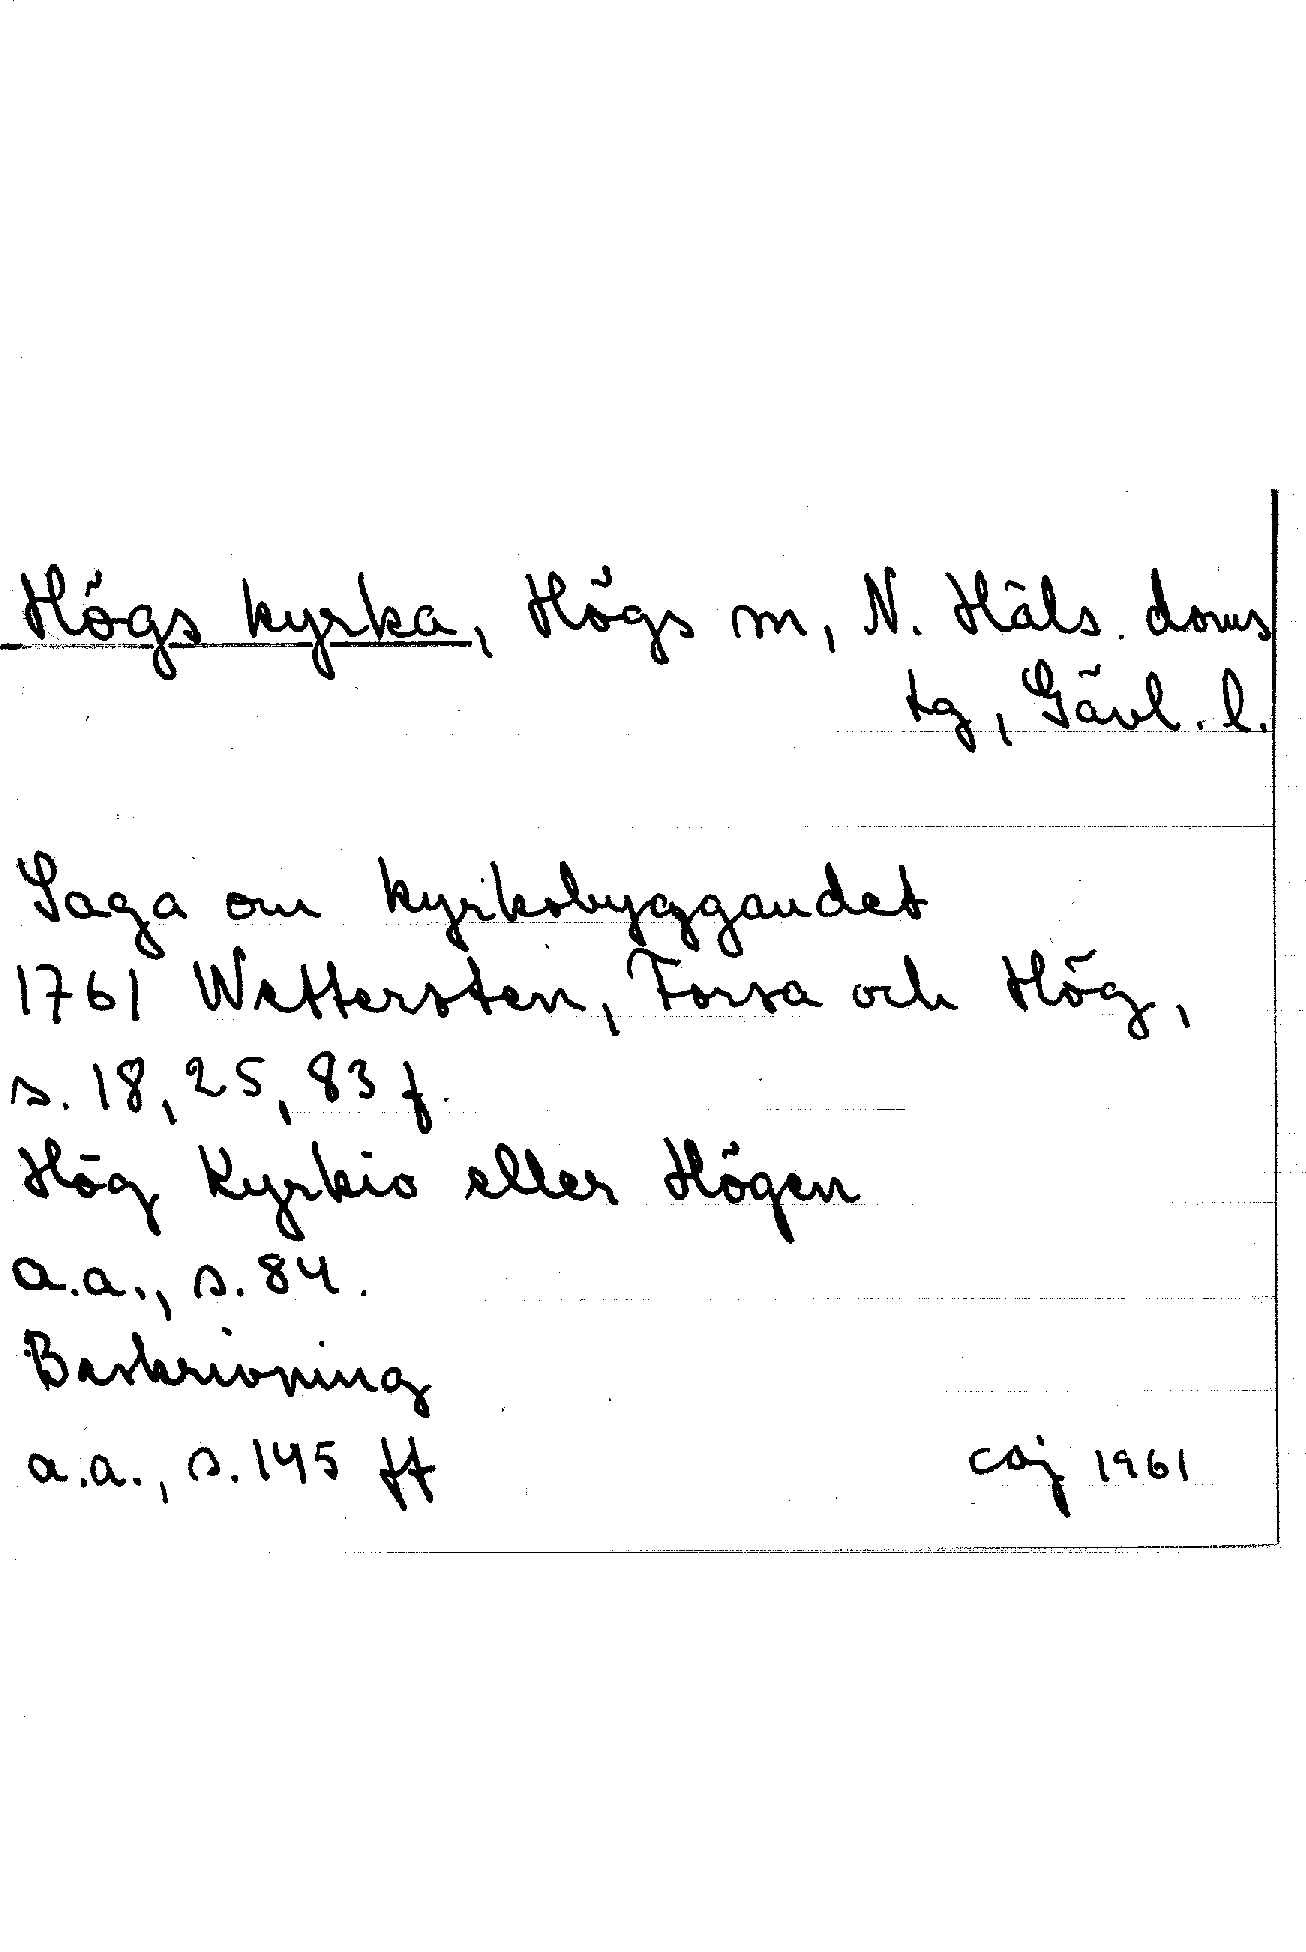 Högs kyrka, Högs sn, N. Häls. doms
tg, Gävl. l.
Saga om kyrkobyggandet
1761 Wettersten, Forsa och Hög,
s. 18, 25, 83 f.
Hög Kyrkio eller Högen
a.a., s. 84.
Beskrivning
a.a., s. 145 ff
coj 1961